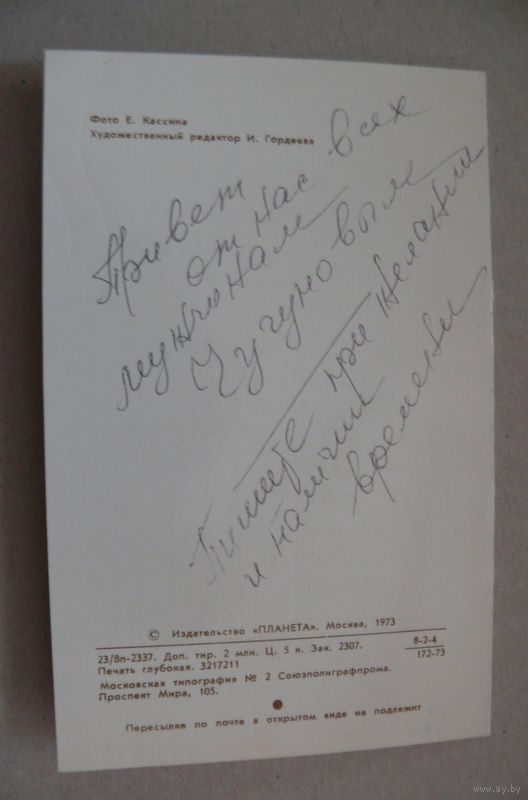 Фото Е. Кассина
Художественный редактор И. Гордеева
Привет
от нас всех
мужчинам
Чугуновым
Пишите при желании
и наличии
времени
© Издательство «ПЛАНЕТА». Москва, 1973
23/8п-2337. Доп. тир. 2 млн. Ц. 5 к. Зак. 2307. 8-2-4
Печать глубокая. 3217211 172-73
Московская типография № 2 Союзполиграфпрома.
Проспект Мира, 105.
Пересылке по почте в открытом виде не подлежит
www.ay.by